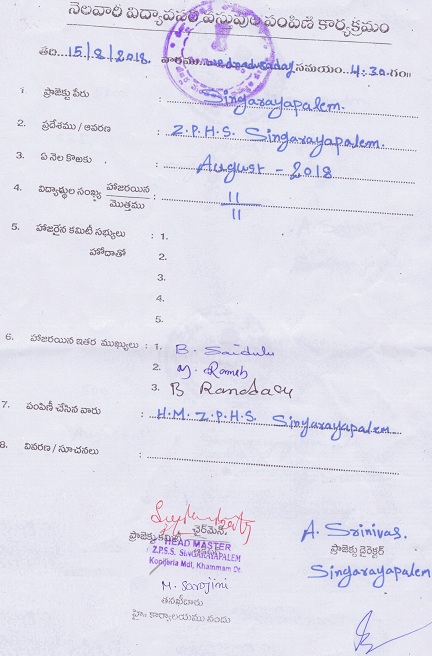 నెలవారీ విద్యావసర వస్తువుల పంపిణీ కార్యక్రమం
తేది 15/8/2018. వారము wednesday సమయం 4:30 గం॥
1. ప్రాజెక్టు పేరు : Singarayapalem.
2. ప్రదేశము / ఆవరణ : Z.P.H.S. Singarayapalem.
3. ఏ నెల కొఱకు : August - 2018
4. విద్యార్థుల సంఖ్య హాజరయిన / మొత్తము : 11 / 11
5. హాజరైన కమిటీ సభ్యులు : 1.
హోదాతో 2.
3.
4.
5.
6. హాజరయిన ఇతర ముఖ్యులు : 1. B. Saidulu
2. Y. Ramesh
3. B
7. పంపిణీ చేసిన వారు : H.M. Z.P.H.S. Singarayapalem
8. వివరణ / సూచనలు :
ప్రాజెక్టు కమిటీ ఛైర్మెన్
HEAD MASTER
Z.P.S.S. SINGARAYAPALEM
Konijerla Mdl, Khammam Dt.
A. Srinivas.
ప్రాజెక్టు డైరెక్టర్
Singarayapalem
M. Sarojini
తనఖీదారు
హై॥ కార్యాలయము నందు